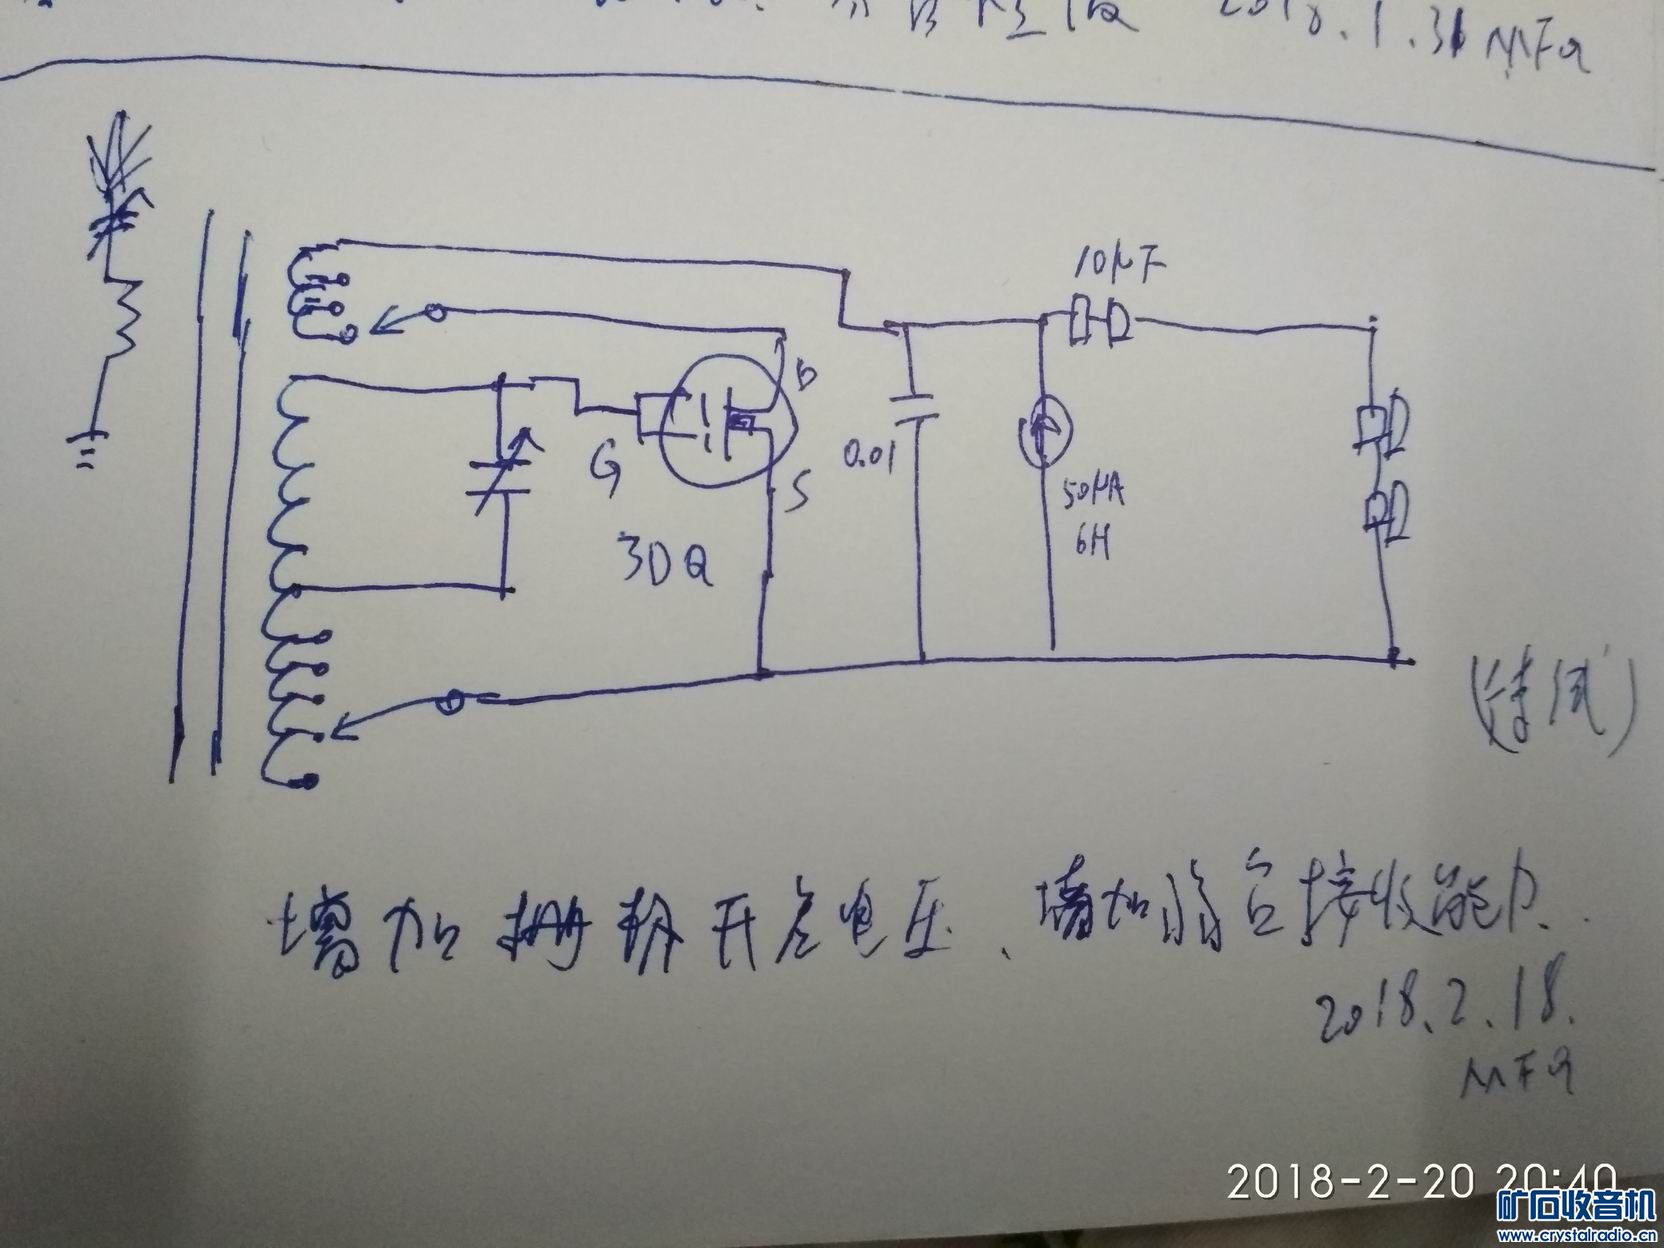 2018.1.31 MFQ
10μF
D
G
S
0.01
50μA
6H
3DQ
(待试)
增加栅极开启电压、增加弱台接收能力.
2018.2.18.
MFQ
2018-2-20 20:40
矿石收音机
www.crystalradio.cn